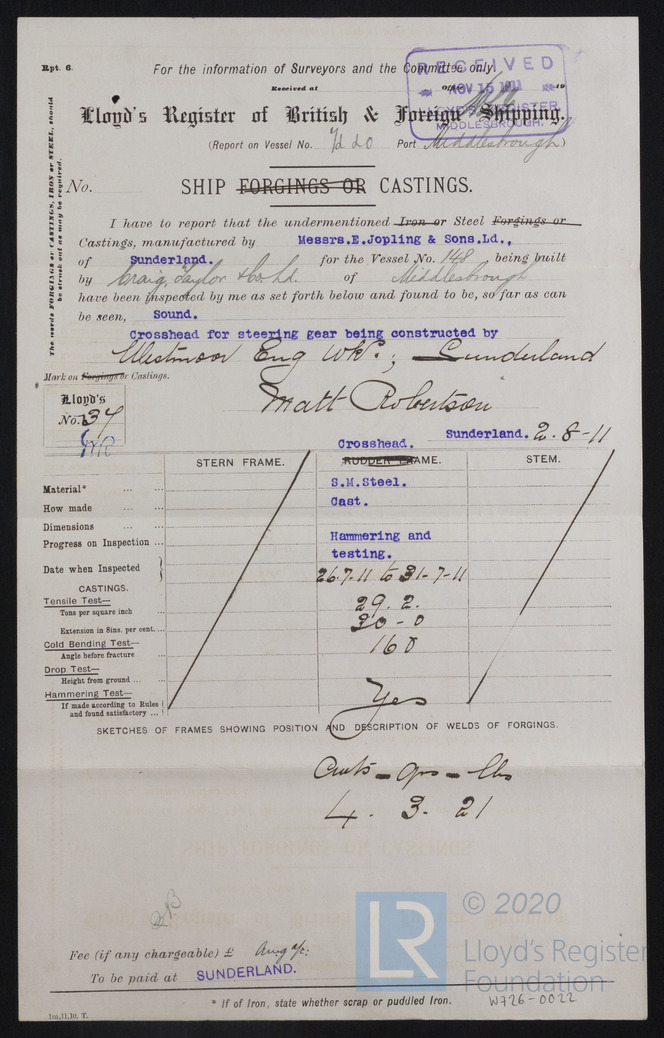 Rpt. 6.
For the information of Surveyors and the Committee only.
RECEIVED
NOV 15 1911
LLOYD'S REGISTER
MIDDLESBROUGH.
Received at Office 19
Lloyd's Register of British & Foreign Shipping.
(Report on Vessel No. Port Middlesbrough)
The words FORGINGS or CASTINGS, IRON or STEEL, should
be struck out as may be required.
No.
SHIP FORGINGS OR CASTINGS.
I have to report that the undermentioned Iron or Steel Forgings or
Castings, manufactured by Messrs.E.Jopling & Sons.Ld.,
of Sunderland. for the Vessel No. 148 being built
by Craig, Taylor & Co. Ld. of Middlesbrough
have been inspected by me as set forth below and found to be, so far as can
be seen, Sound.
Crosshead for steering gear being constructed by
Westmoor Eng Wks.; Sunderland
Mark on Forgings or Castings.
Matt Robertson
Lloyd's
No. 34
MR
Sunderland. 2-8-11
Crosshead.
STERN FRAME. RUDDER FRAME. STEM.
Material* S.M.Steel.
How made Cast.
Dimensions
Progress on Inspection Hammering and
testing.
Date when Inspected 26.7-11 to 31-7-11
CASTINGS.
Tensile Test—
Tons per square inch 29.2.
Extension in 8ins. per cent. 30-0
Cold Bending Test—
Angle before fracture 160
Drop Test—
Height from ground
Hammering Test—
If made according to Rules
and found satisfactory Yes
SKETCHES OF FRAMES SHOWING POSITION AND DESCRIPTION OF WELDS OF FORGINGS.
Cwts - Qrs - lbs
4. 3. 21
Fee (if any chargeable) £
To be paid at SUNDERLAND.
* If of Iron, state whether scrap or puddled Iron.
1m,11,10. T.
LR
© 2020
Lloyd's Register
Foundation
W726-0022